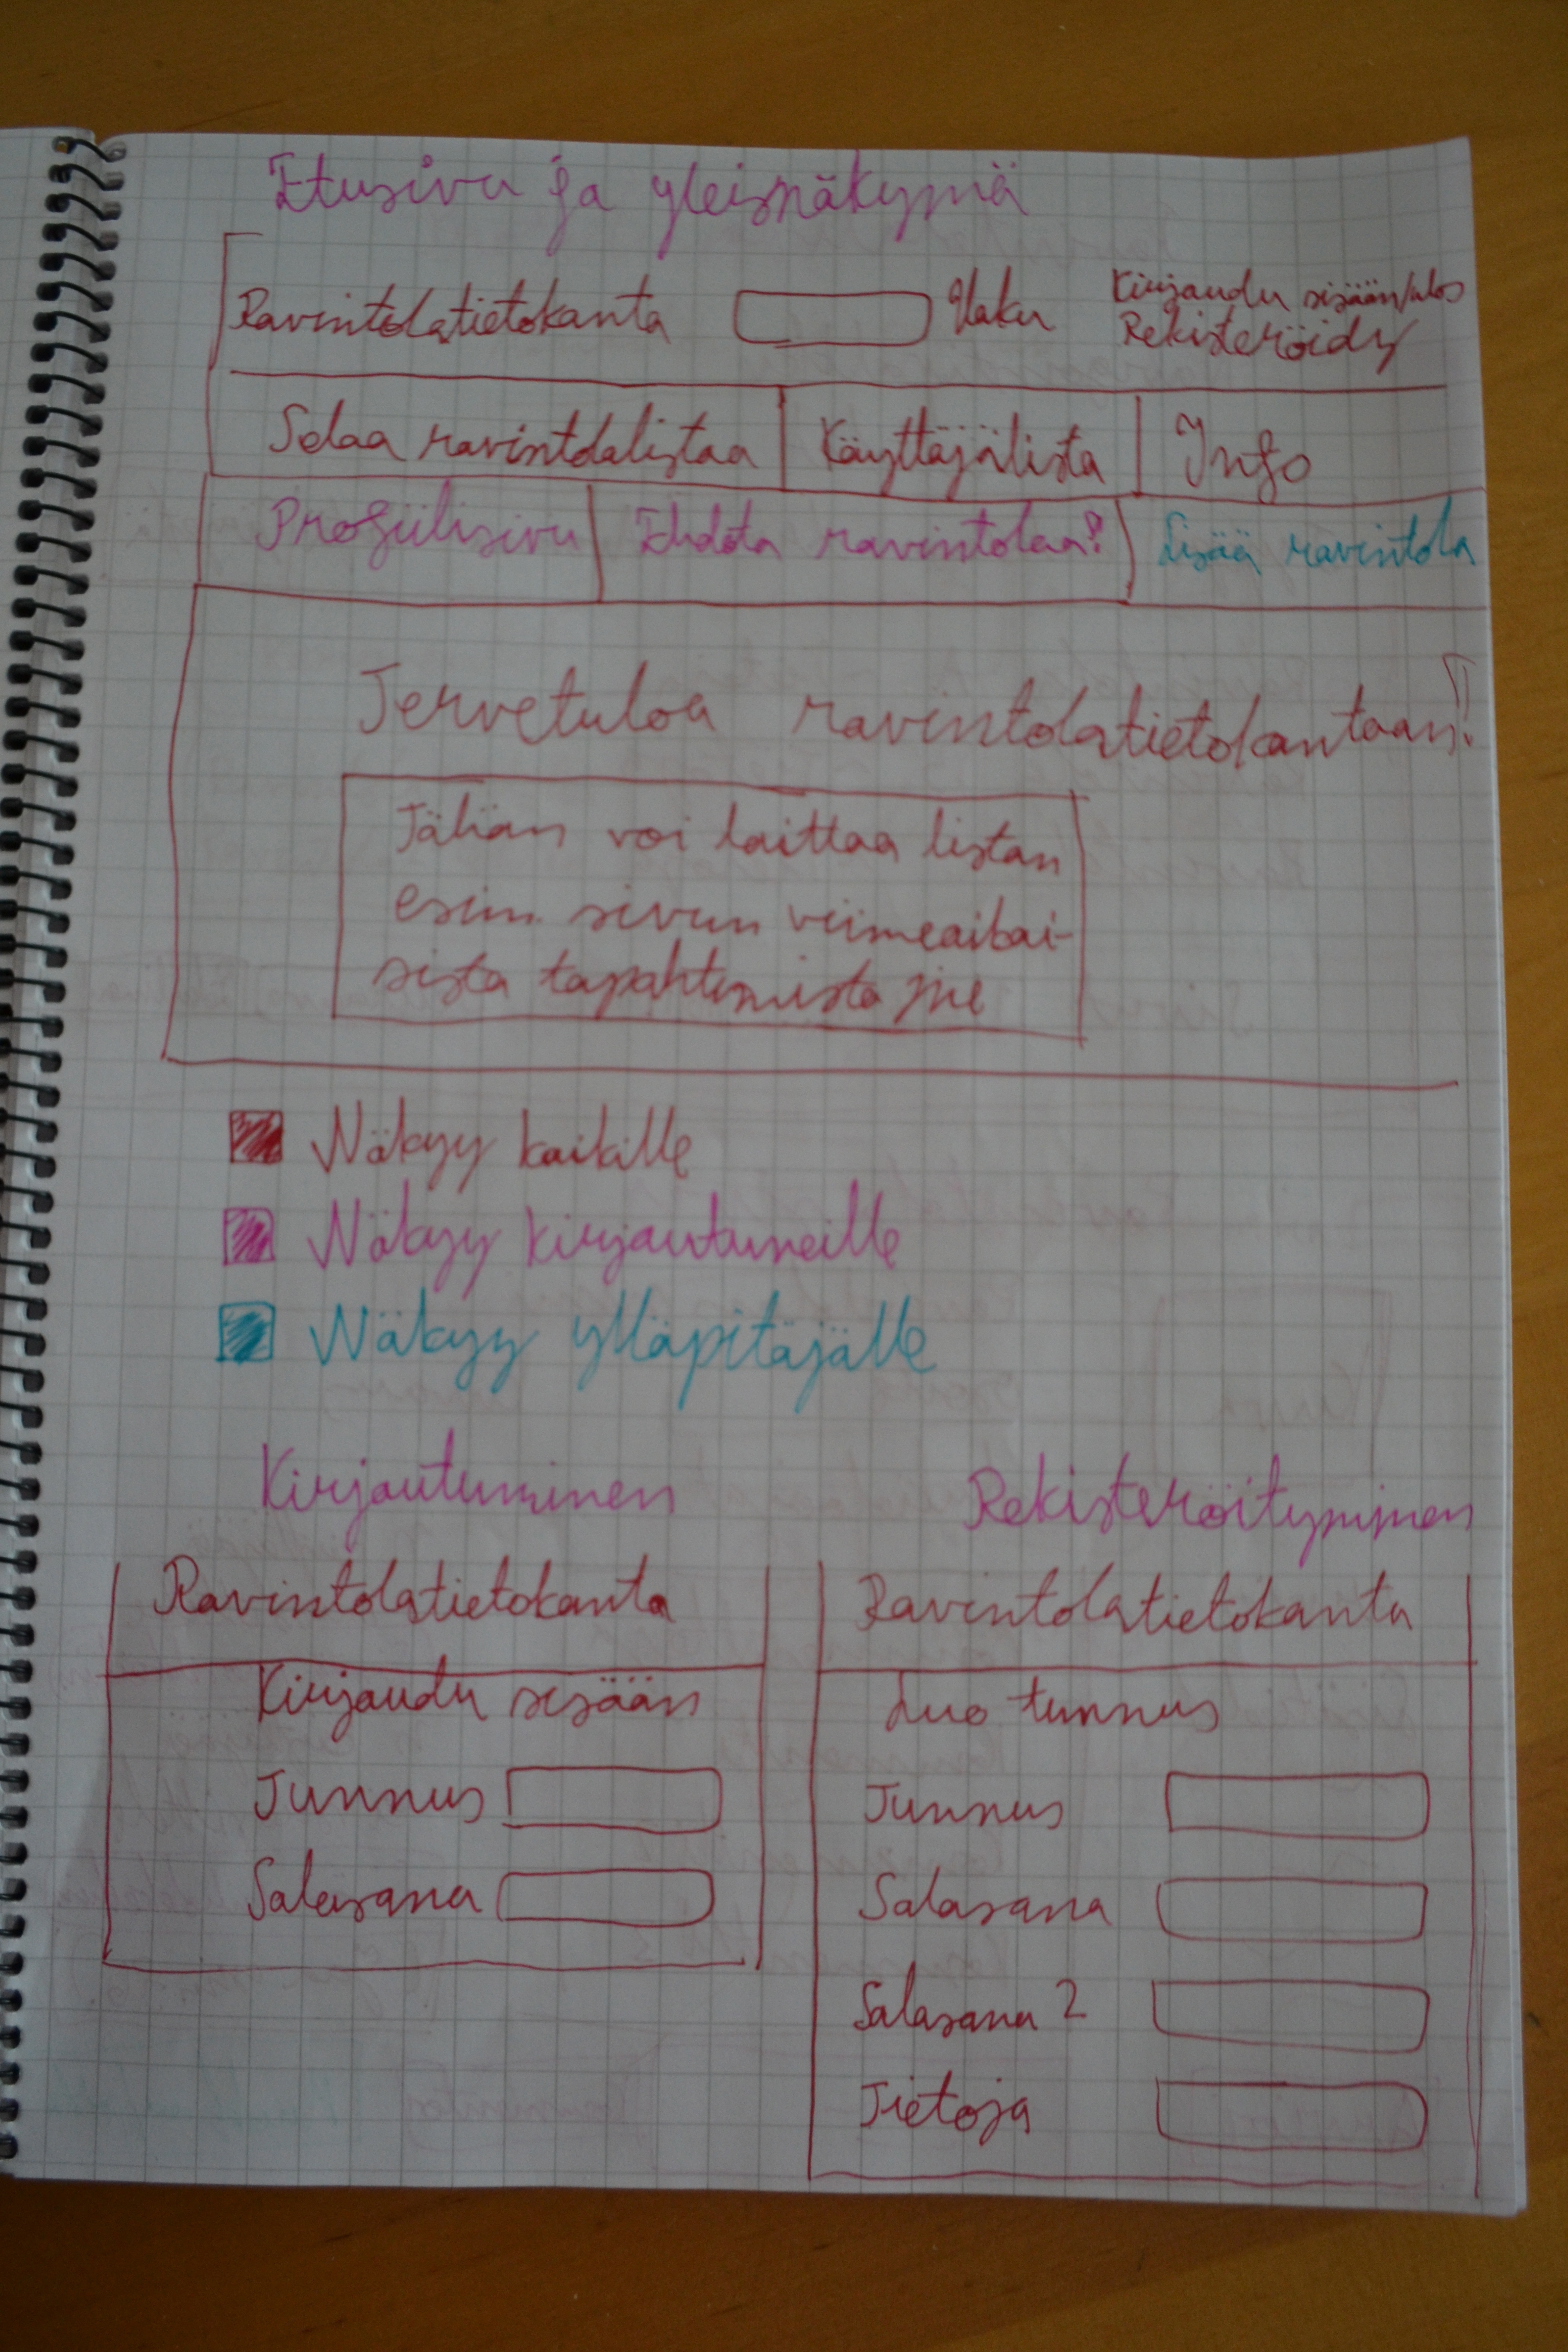 Etusivu ja yleisnäkymä
Ravintolatietokanta Haku Kirjaudu sisään/ulos
Rekisteröidy
Selaa ravintolalistaa Käyttäjälista Info
Profiilisivu Ehdota ravintolaa? Lisää ravintola
Tervetuloa ravintolatietokantaan!
Tähän voi laittaa listan
esim. sivun viimeaikai-
sista tapahtumista jne
Näkyy kaikille
Näkyy kirjautuneille
Näkyy ylläpitäjälle
Kirjautuminen
Ravintolatietokanta
Kirjaudu sisään
Tunnus
Salasana
Rekisteröityminen
Ravintolatietokanta
Luo tunnus
Tunnus
Salasana
Salasana 2
Tietoja